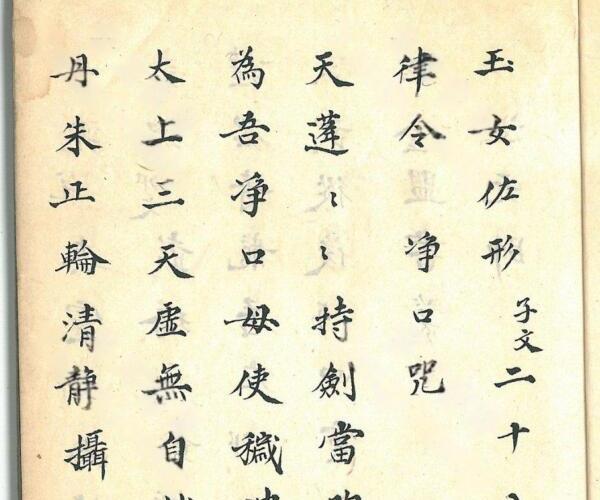 玉女佐形子文二十
律令净口咒
天蓬〻〻持劍當
為吾净口毋使穢
太上三天虛無自
丹朱正輪清静攝